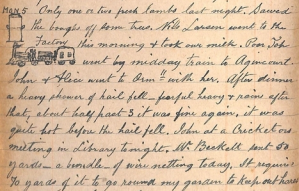 Mon 5 Only one or two fresh lambs last night. Sawed
the boughs off some trees. Nils Larsen went to the
Factory this morning & took our milk. Poor
went by midday train to Agincourt.
John & Alice went to " with her. After dinner
a heavy shower of hail fell – fearful heavy & rain after
that, about half past 3 it was fine again, it was
quite hot before the hail fell. John at a Cricketers
meeting in Library tonight. Mr Beckett sent 50
yards – a bundle – of wire netting today. It requires
70 yards of it to go round my garden to keep out hares